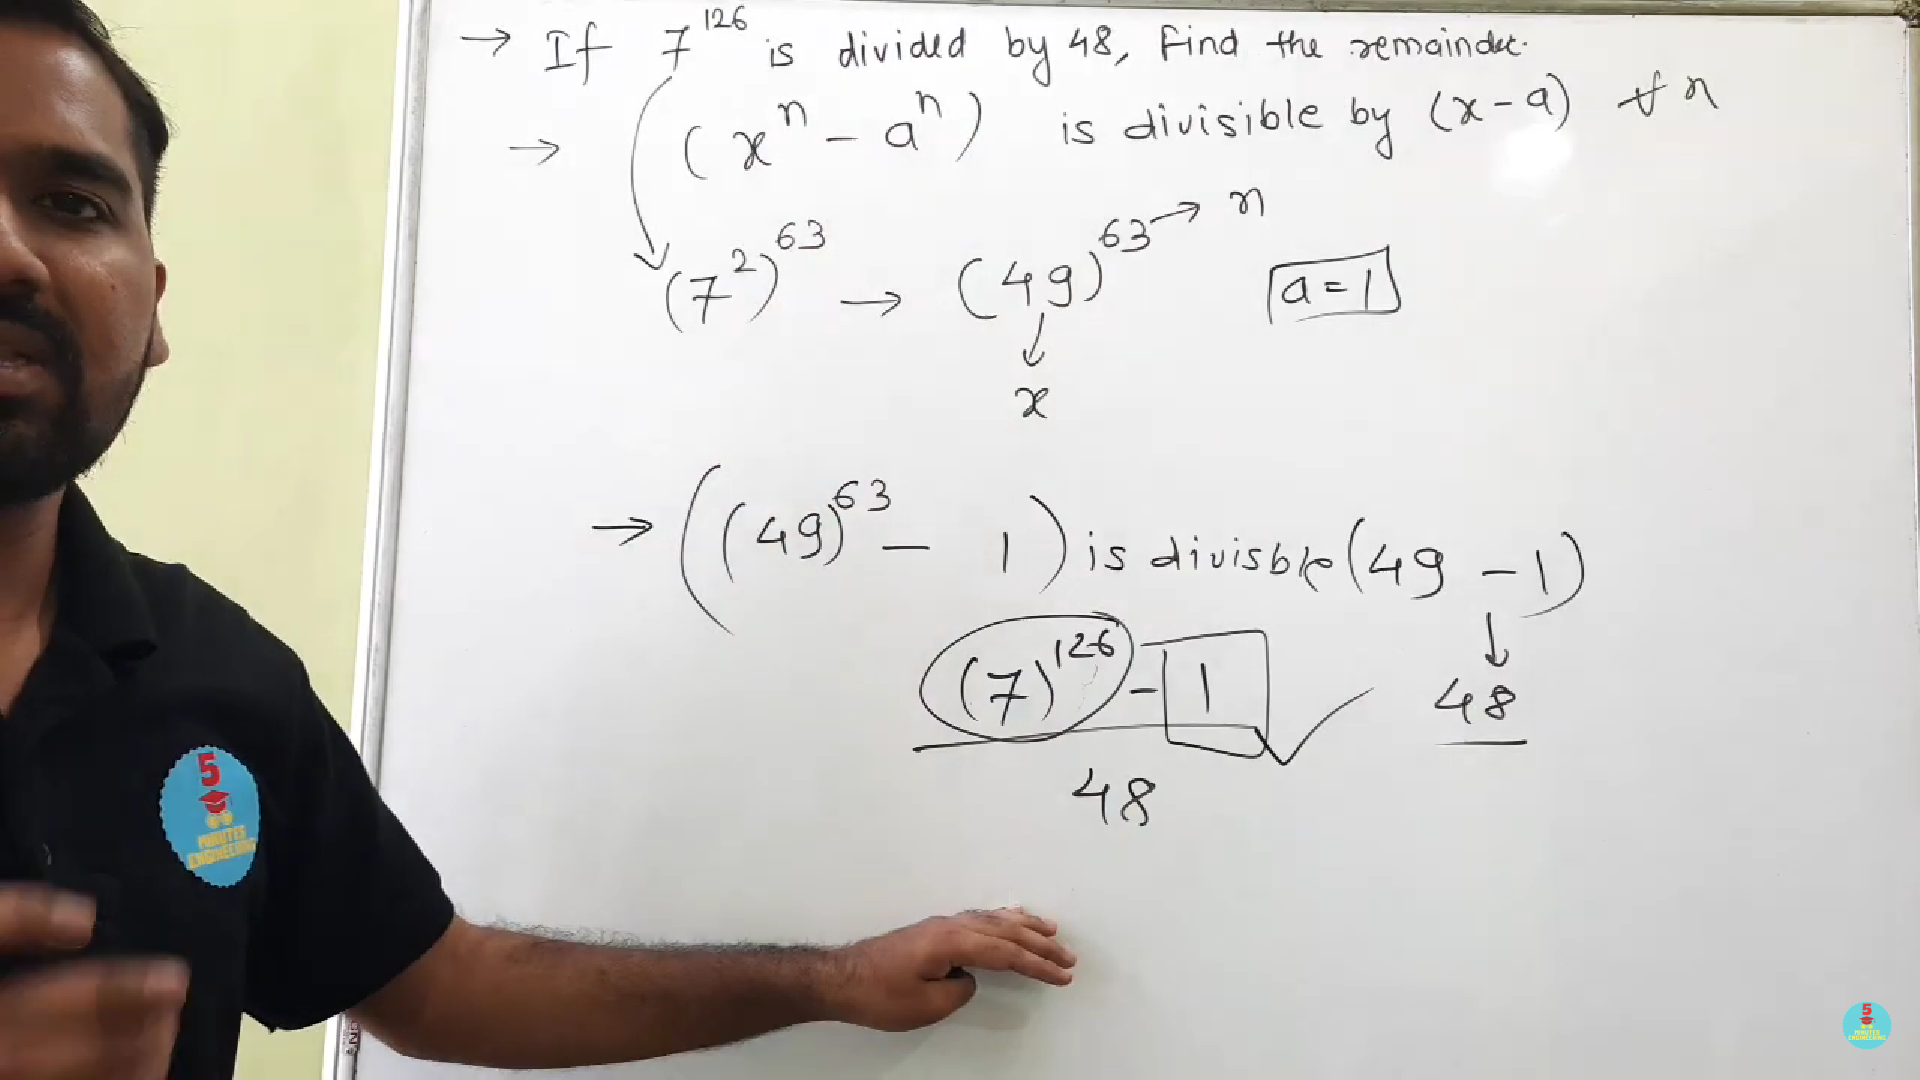 → If 7^126 is divided by 48, Find the remainder.
→ (x^n - a^n) is divisible by (x-a) ∀ n
(7^2)^63 → (49)^63 → n a=1
↓
x
→ ((49)^63 - 1) is divisble (49 - 1)
↓
(7)^126 - 1 ✓ 48
48
5
MINUTES
ENGINEERING
5
MINUTES
ENGINEERING